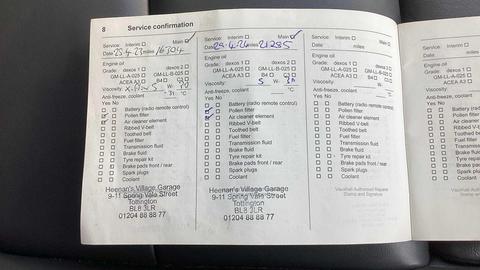 8 Service confirmation
Service: Interim Main
Date 25.4.23 miles 16304
Engine oil
Grade: dexos 1 dexos 2
GM-LL-A-025 GM-LL-B-025
ACEA A3 B4 C3
Viscosity: W-
Anti-freeze, coolant °C
Yes No
Battery (radio remote control)
Pollen filter
Air cleaner element
Ribbed V-belt
Toothed belt
Fuel filter
Transmission fluid
Brake fluid
Tyre repair kit
Brake pads front / rear
Spark plugs
Coolant
Heenan's Village Garage
9-11 Spring Vale Street
Tottington
BL8 3LR
01204 88 88 77
Service: Interim Main
Date miles 21285
Engine oil
Grade: dexos 1 dexos 2
GM-LL-A-025 GM-LL-B-025
ACEA A3 B4 C3
Viscosity: 5 W-
Anti-freeze, coolant °C
Yes No
Battery (radio remote control)
Pollen filter
Air cleaner element
Ribbed V-belt
Toothed belt
Fuel filter
Transmission fluid
Brake fluid
Tyre repair kit
Brake pads front / rear
Spark plugs
Coolant
Heenan's Village Garage
9-11 Spring Vale Street
Tottington
BL8 3LR
01204 88 88 77
Service: Interim Main
Date miles
Engine oil
Grade: dexos 1 dexos 2
GM-LL-A-025 GM-LL-B-025
ACEA A3 B4 C3
Viscosity: W-
Anti-freeze, coolant °C
Yes No
Battery (radio remote control)
Pollen filter
Air cleaner element
Ribbed V-belt
Toothed belt
Fuel filter
Transmission fluid
Brake fluid
Tyre repair kit
Brake pads front / rear
Spark plugs
Coolant
Vauxhall Authorised Repairer
Stamp and Signature